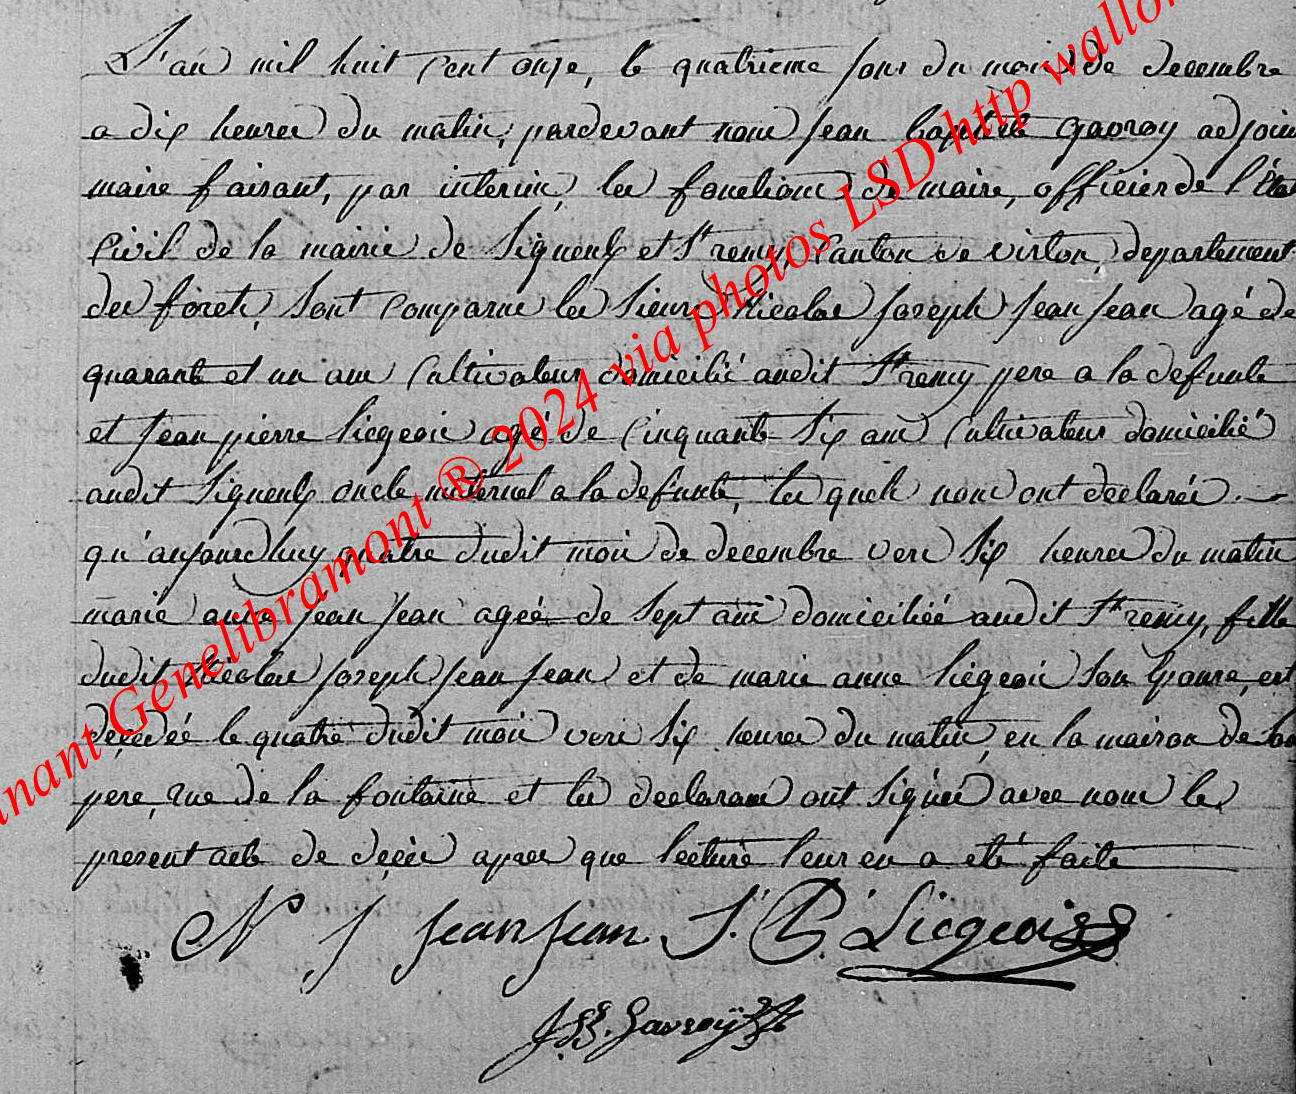 L'an mil huit cent onze, le quatrieme jour du mois de decembre
a dix heures du matin, pardevant nous Jean Baptiste Gavroy adjoin
maire faisant, par interim, les fonctions de maire, officier de l'État
Civil de la mairie de Signeulx et St remy, Canton de virton, departement
des forêts, sont comparus les sieurs Nicolas Joseph JeanJean agé de
quarante et un ans Cultivateur domicilié audit St remy pere a la defunte
et Jean pierre Liegeois agé de Cinquante Six ans Cultivateur domicilié
audit Signeulx oncle maternel a la defunte, les quels nous ont declarés
qu'aujourdhuy quatre dudit mois de decembre vers six heures du matin
marie anne JeanJean ageé de sept ans domiciliée audit St remy, fille
dudit Nicolas Joseph JeanJean et de marie anne Liegeois son Epouse, est
décédée le quatre dudit mois vers six heures du matin, en la maison de son
pere, rue de la fontaine et les declarans ont signés avec nous le
present acte de decès apres que lecture leur en a eté faite
N J JeanJean J. P. Liegeois
J. B. Gavroÿ
anant Genelibramont ® 2024 via photos LSD http wallon